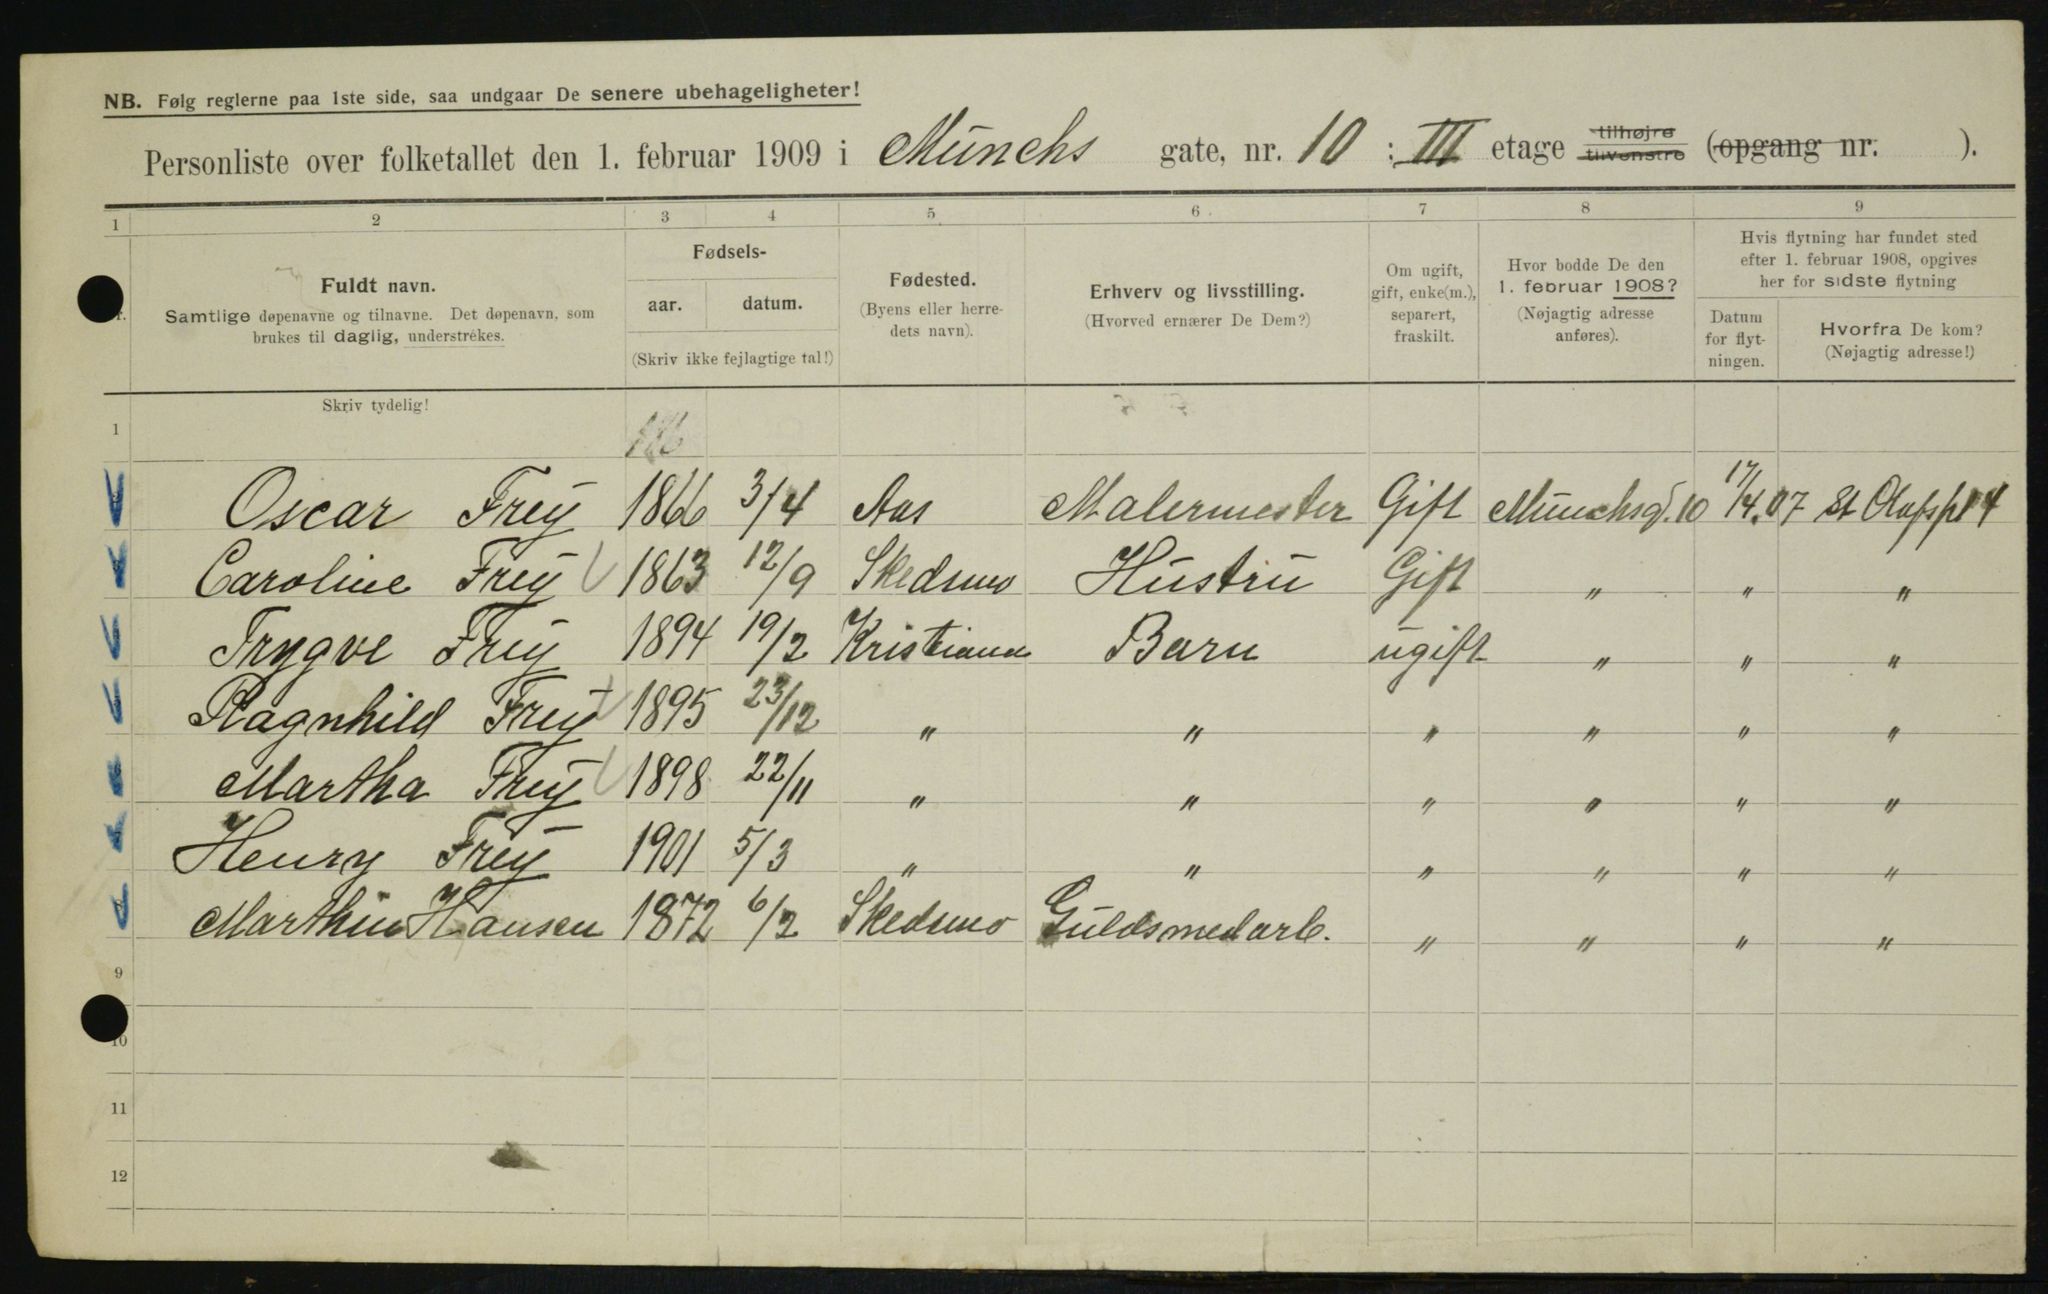 NB. Følg reglerne paa 1ste side, saa undgaar De senere ubehageligheter!
Personliste over folketallet den 1. februar 1909 i Munchs gate, nr. 10 : III etage tilhøjre tilvenstre (opgang nr. ).
1 2 3 4 5 6 7 8 9
Fuldt navn.
Samtlige døpenavne og tilnavne. Det døpenavn, som
brukes til daglig, understrekes.
Fødsels-
aar. datum.
(Skriv ikke fejlagtige tal!)
Fødested.
(Byens eller herre-
dets navn).
Erhverv og livsstilling.
(Hvorved ernærer De Dem?)
Om ugift,
gift, enke(m.),
separert,
fraskilt.
Hvor bodde De den
1. februar 1908?
(Nøjagtig adresse
anføres).
Hvis flytning har fundet sted
efter 1. februar 1908, opgives
her for sidste flytning
Datum
for flyt-
ningen.
Hvorfra De kom?
(Nøjagtig adresse!)
Skriv tydelig!
1
Oscar Frey 1866 3/4 Aas Malermester Gift Munchsg. 10 17/4.07 St Olafspl 4
Caroline Frey 1863 12/9 Skedsmo Hustru Gift " " "
Trygve Frey 1894 19/2 Kristiania Barn ugift " " "
Ragnhild Frey 1895 23/12 " " " " " "
Martha Frey 1898 22/11 " " " " " "
Henry Frey 1901 5/3 " " " " " "
Marthin Hansen 1872 6/2 Skedsmo Guldsmedarb. " " " "
9
10
11
12